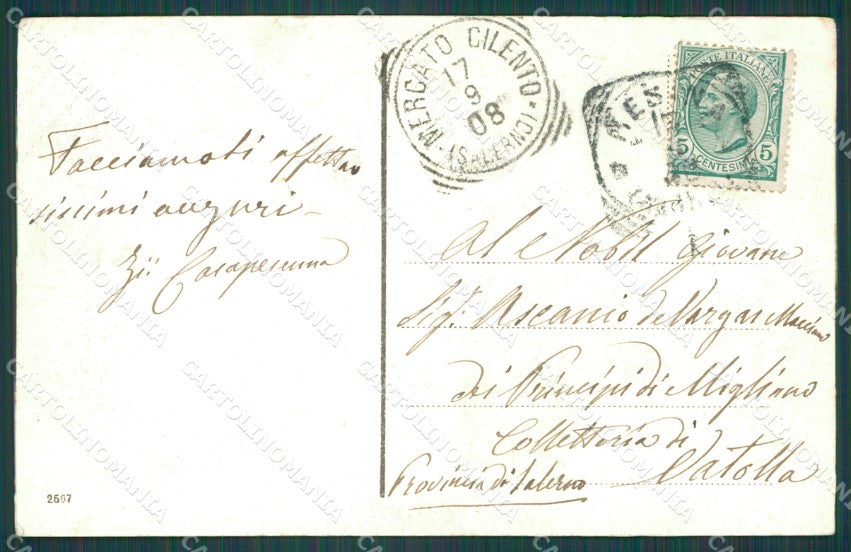 Facciamoti affettuo
sissimi auguri -
Zii Casapesenna
2567
MERCATO CILENTO
(SALERNO)
17
9
08
MES
POSTE ITALIANE
5 CENTESIMI 5
Al Nobil Giovane
Sig. Ascanio de Vargas Macciucca
dei Principi di Migliano
Collettoria di
Vatolla
Provincia di Salerno
CARTOLINOMANIA